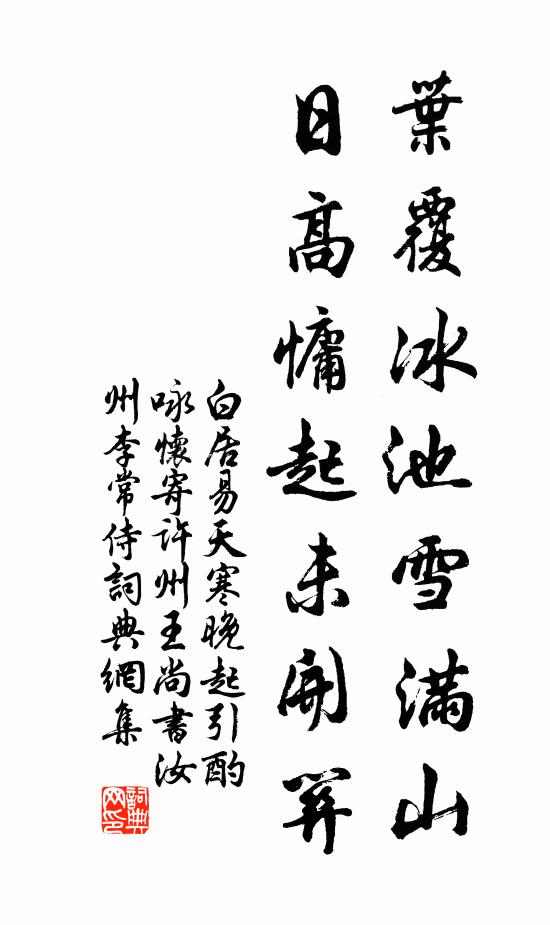 葉覆冰池雪滿山
日高慵起未開關
白居易天寒晚起引酌
咏懷寄許州王尚書汝
州李常侍詞典網集
詞典
网印